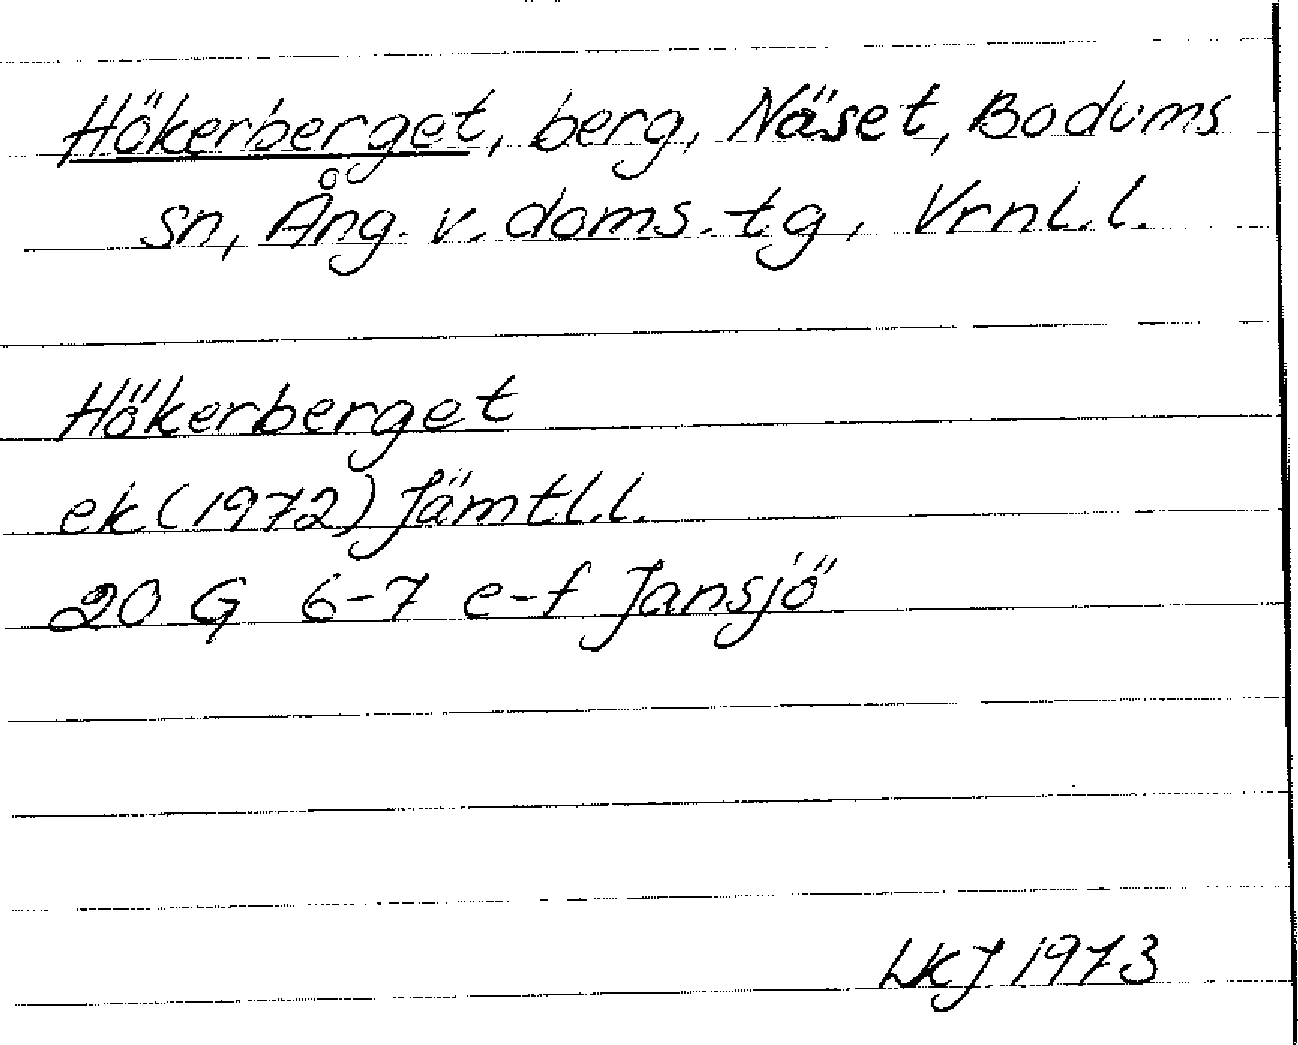 Hökerberget, berg, Näset, Bodums
sn, Ång. v. doms. tg, Vrnl. l.
Hökerberget
ek (1972) Jämtl. l.
20 G 6-7 e-f Jansjö
LKJ 1973